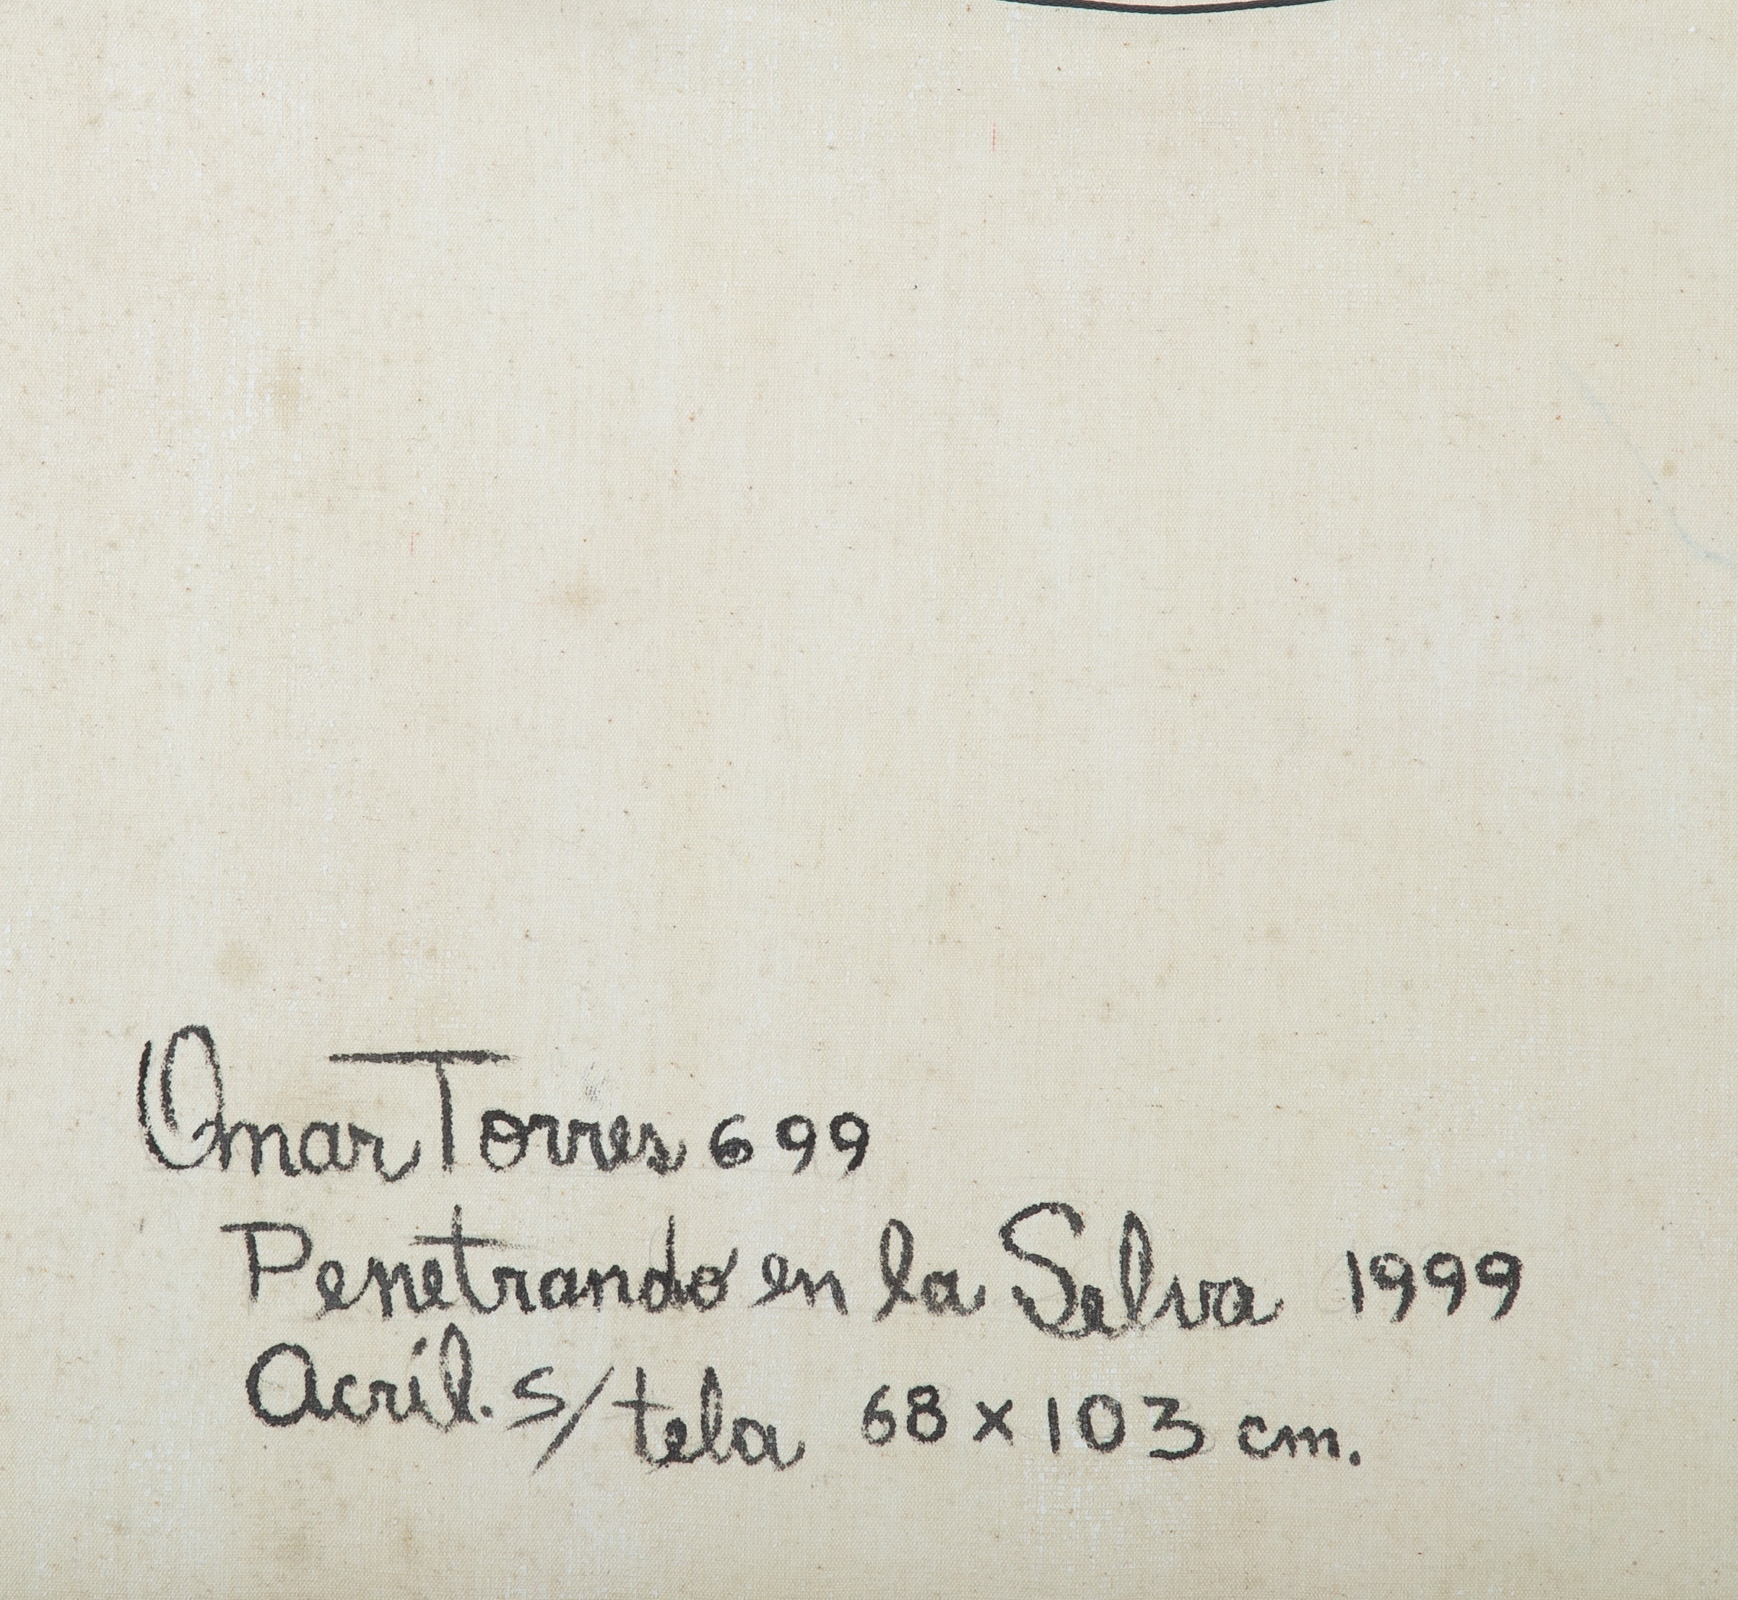 Omar Torres 6 99
Penetrando en la Selva 1999
Acríl. s/tela 68 x 103 cm.